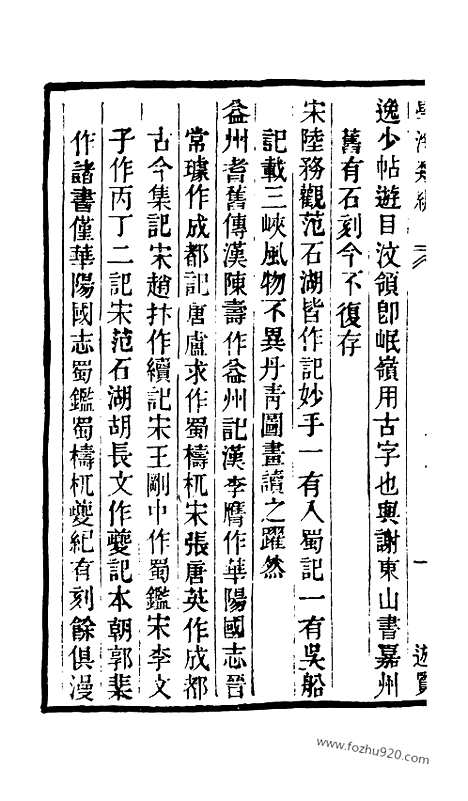 學海類編
遊
逸少帖遊目汶領卽岷嶺用古字也與謝東山書嘉州
舊有石刻今不復存
宋陸務觀范石湖皆作記妙手一有入蜀記一有吳船
記載三峽風物不異丹青圖畫讀之躍然
益州耆舊傳漢陳壽作益州記漢李膺作華陽國志晉
常璩作成都記唐盧求作蜀檮杌宋張唐英作成都
古今集記宋趙抃作續記宋王剛中作蜀鑑宋李文
子作丙丁二記宋范石湖胡長文作夔記本朝郭棐
作諸書僅華陽國志蜀鑑蜀檮杌夔紀有刻餘俱漫
www.fozhu920.com